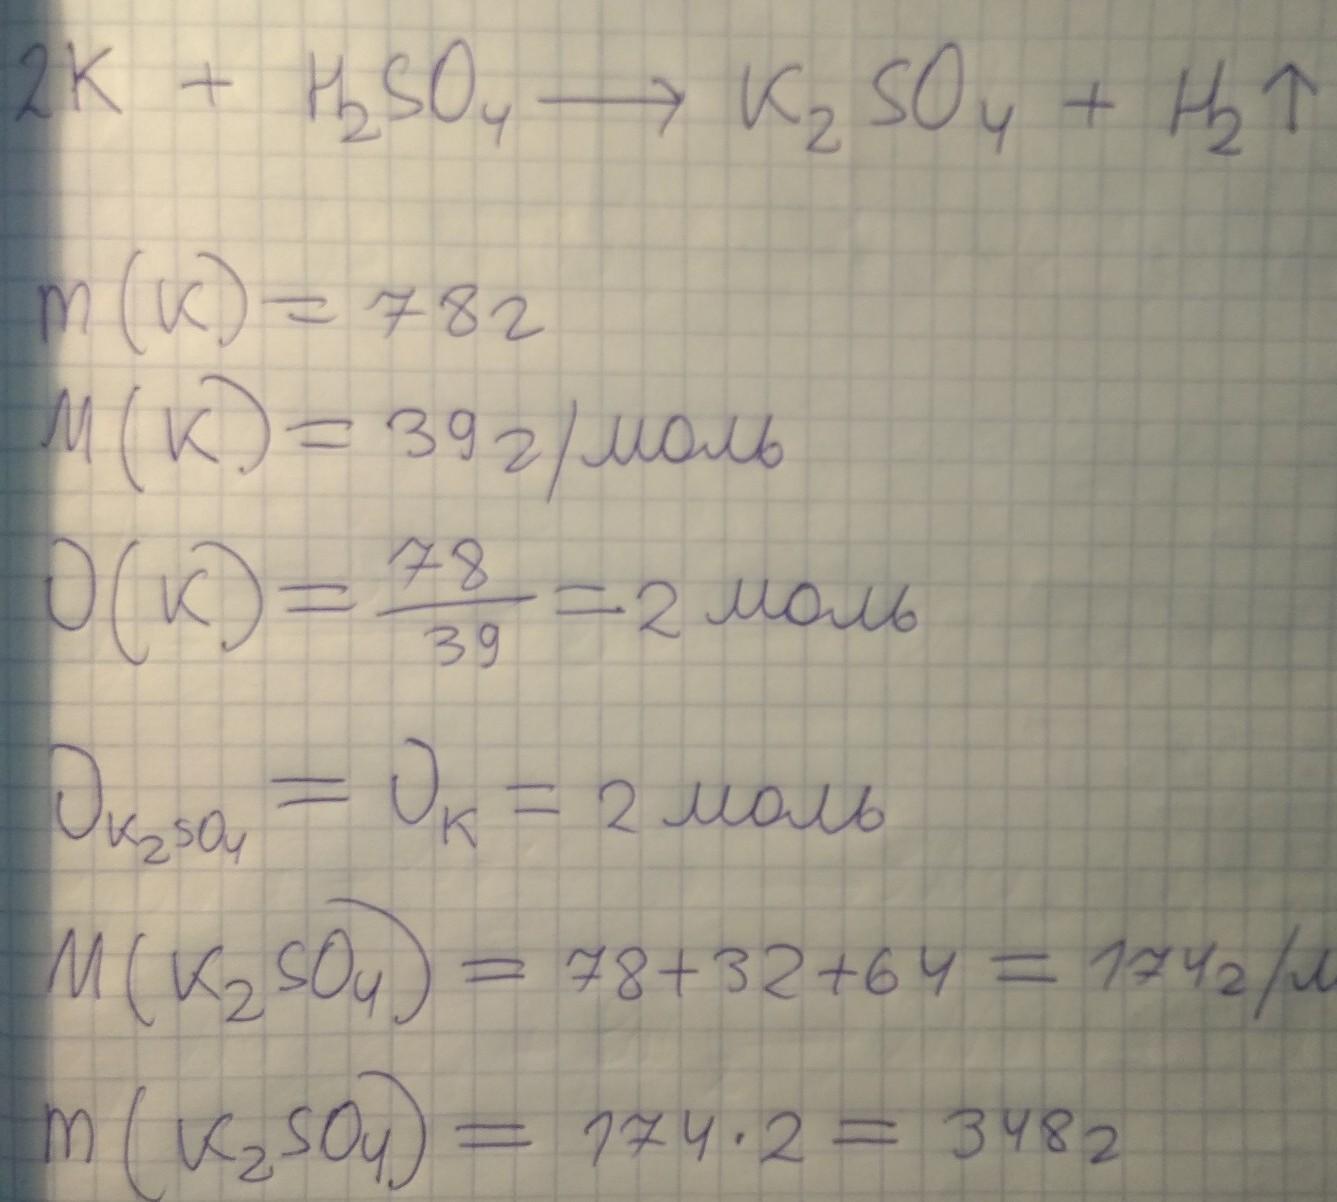 2K + H₂SO₄ ⟶ K₂SO₄ + H₂↑
m(K) = 78г
M(K) = 39г/моль
υ(K) = 78/39 = 2 моль
υ_K₂SO₄ = υ_K = 2 моль
M(K₂SO₄) = 78+32+64 = 174г/м
m(K₂SO₄) = 174·2 = 348г